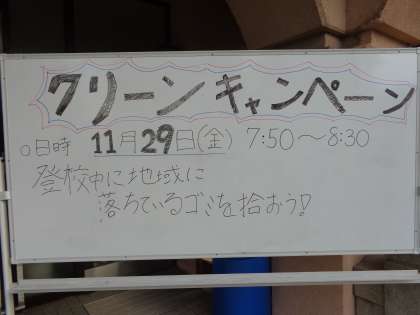 クリーンキャンペーン
○日時 11月29日(金) 7:50〜8:30
登校中に地域に
落ちているゴミを拾おう!